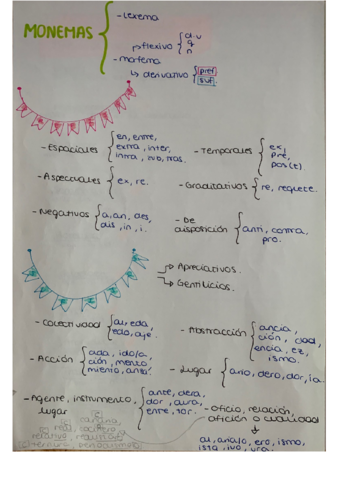 MONEMAS
- Lexema
flexivo
d.u
g
n
- morfema
derivativo
pref
suf.
- Espaciales
en, entre,
extra, inter,
intra, sub, tras.
- Temporales
ex,
pre,
pos(t).
- Aspectuales
ex, re.
- Graditativos
re, requete.
- Negativos
a, an, des,
dis, in, i.
- De
disposición
anti, contra,
pro.
Apreciativos.
Gentilicios.
- Colectividad
al, eda,
edo, aje.
- Abstracción
ancia,
ción, dad,
encia, ez,
ismo.
- Acción
ada, ido/a,
ción, mento,
miento, anza.
- Lugar
ario, dero, dor, ia.
- Agente, instrumento,
lugar
ante, dera,
dor, aura,
entre, tor.
- oficio, relación,
afición o cualidad
al, ario/a, ero, ismo,
ista, ivo, ura.